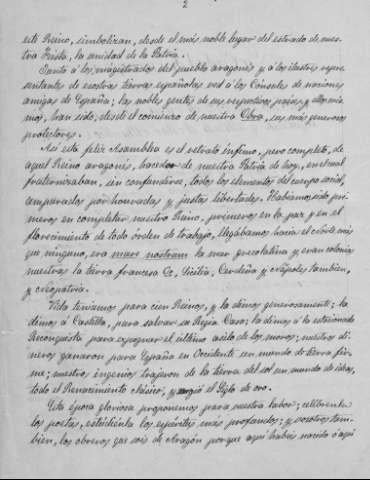 2
este Reino, simbolizan, desde el más noble lugar del estrado de nues-
tra Fiesta, la unidad de la Patria.
Junto á los magistrados del pueblo aragonés y á los ilustres repre-
sentantes de nuestras tierras españolas ved á los Cónsules de naciones
amigas de España; las nobles gentes de sus respectivos países,
han sido, desde el comienzo de nuestra Obra, sus más generosos
protectores.
Así esta feliz Asamblea es el retrato ínfimo, pero completo, de
aquel Reino aragonés, hacedor de nuestra Patria de hoy, en el cual
fraternizaban, sin confundirse, todos los elementos del cuerpo social,
amparados por honradas y justas libertades. Habíamos sido pri-
meros en completar nuestro Reino, primeros en la paz y en el
florecimiento de todo órden de trabajo, llegábamos hacia el Norte más
que ninguno, era mare nostrum la mar grecolatina y eran colonias
nuestras la tierra francesa Sicilia, Cerdeña y Nápoles también,
y
Vida teníamos para cien Reinos, y la dimos generosamente; la
dimos á Castilla, para salvar su Regia Casa; la dimos á la
Reconquista para expugnar el último asilo de los moros; nuestros di-
neros ganaron para España en Occidente un mundo de tierra fir-
me; nuestros ingenios trajeron de la tierra del sol un mundo de ideas,
todo el Renacimiento clásico, y surgió el Siglo de oro.
Esta época gloriosa proponemos para nuestra labor; celébrenla
los poetas, estúdienla los espíritus más profundos; y vosotros tam-
bién, los obreros que sois de Aragón porque aquí habéis nacido ó aquí